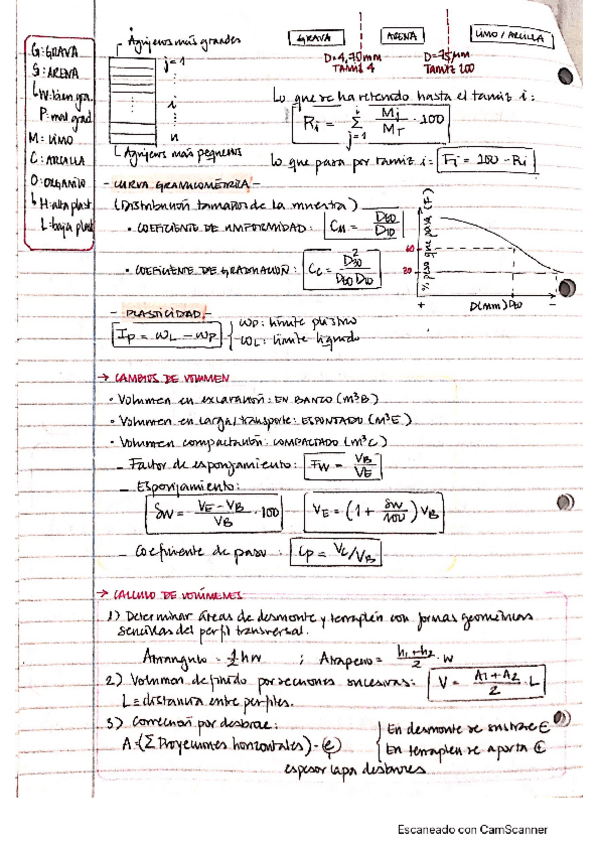 G: GRAVA
S: ARENA
↳ W: bien gra.
P: mal grad
M: LIMO
C: ARCILLA
O: ORGANICO
↳ H: alta plast.
L: baja plast
Agujeros más grandes
j=1
i
n
Agujeros más pequeños
GRAVA
ARENA
LIMO / ARCILLA
D=4,70mm
TAMIZ 4
D=75μm
TAMIZ 200
Lo que se ha retenido hasta el tamiz i:
Ri = Σ(j=1→i) Mj/MT · 100
Lo que pasa por tamiz i: Fi = 100 - Ri
- CURVA GRANULOMÉTRICA -
(Distribución tamaños de la muestra)
• COEFICIENTE DE UNIFORMIDAD: Cu = D60/D10
• COEFICIENTE DE GRADUACIÓN: Cc = D30²/D60 D10
% peso que pasa (F)
60
+
D(mm) D60
-
- PLASTICIDAD -
Ip = ωL - ωP
ωP: límite plástico
ωL: límite líquido
→ CAMBIOS DE VOLUMEN
• Volumen en excavación: EN BANCO (m³B)
• Volumen en carga/transporte: ESPONJADO (m³E)
• Volumen compactación: COMPACTADO (m³C)
- Factor de esponjamiento: FW = VB/VE
- Esponjamiento:
SW = (VE - VB)/VB · 100
VE = (1 + SW/100) VB
- Coeficiente de paso: Cp = VC/VB
→ CALCULO DE VOLÚMENES
1) Determinar áreas de desmonte y terraplén con formas geométricas
sencillas del perfil transversal.
Atriangulo = 1/2 h w ; Atrapecio = (h1+h2)/2 · w
2) Volumen definido por secciones sucesivas: V = (A1+A2)/2 · L
L = distancia entre perfiles.
3) Corrección por desbroce:
A = (Σ Proyecciones horizontales) · (e)
espesor capa desbroces
En desmonte se
En terraplén se aporta
Escaneado con CamScanner